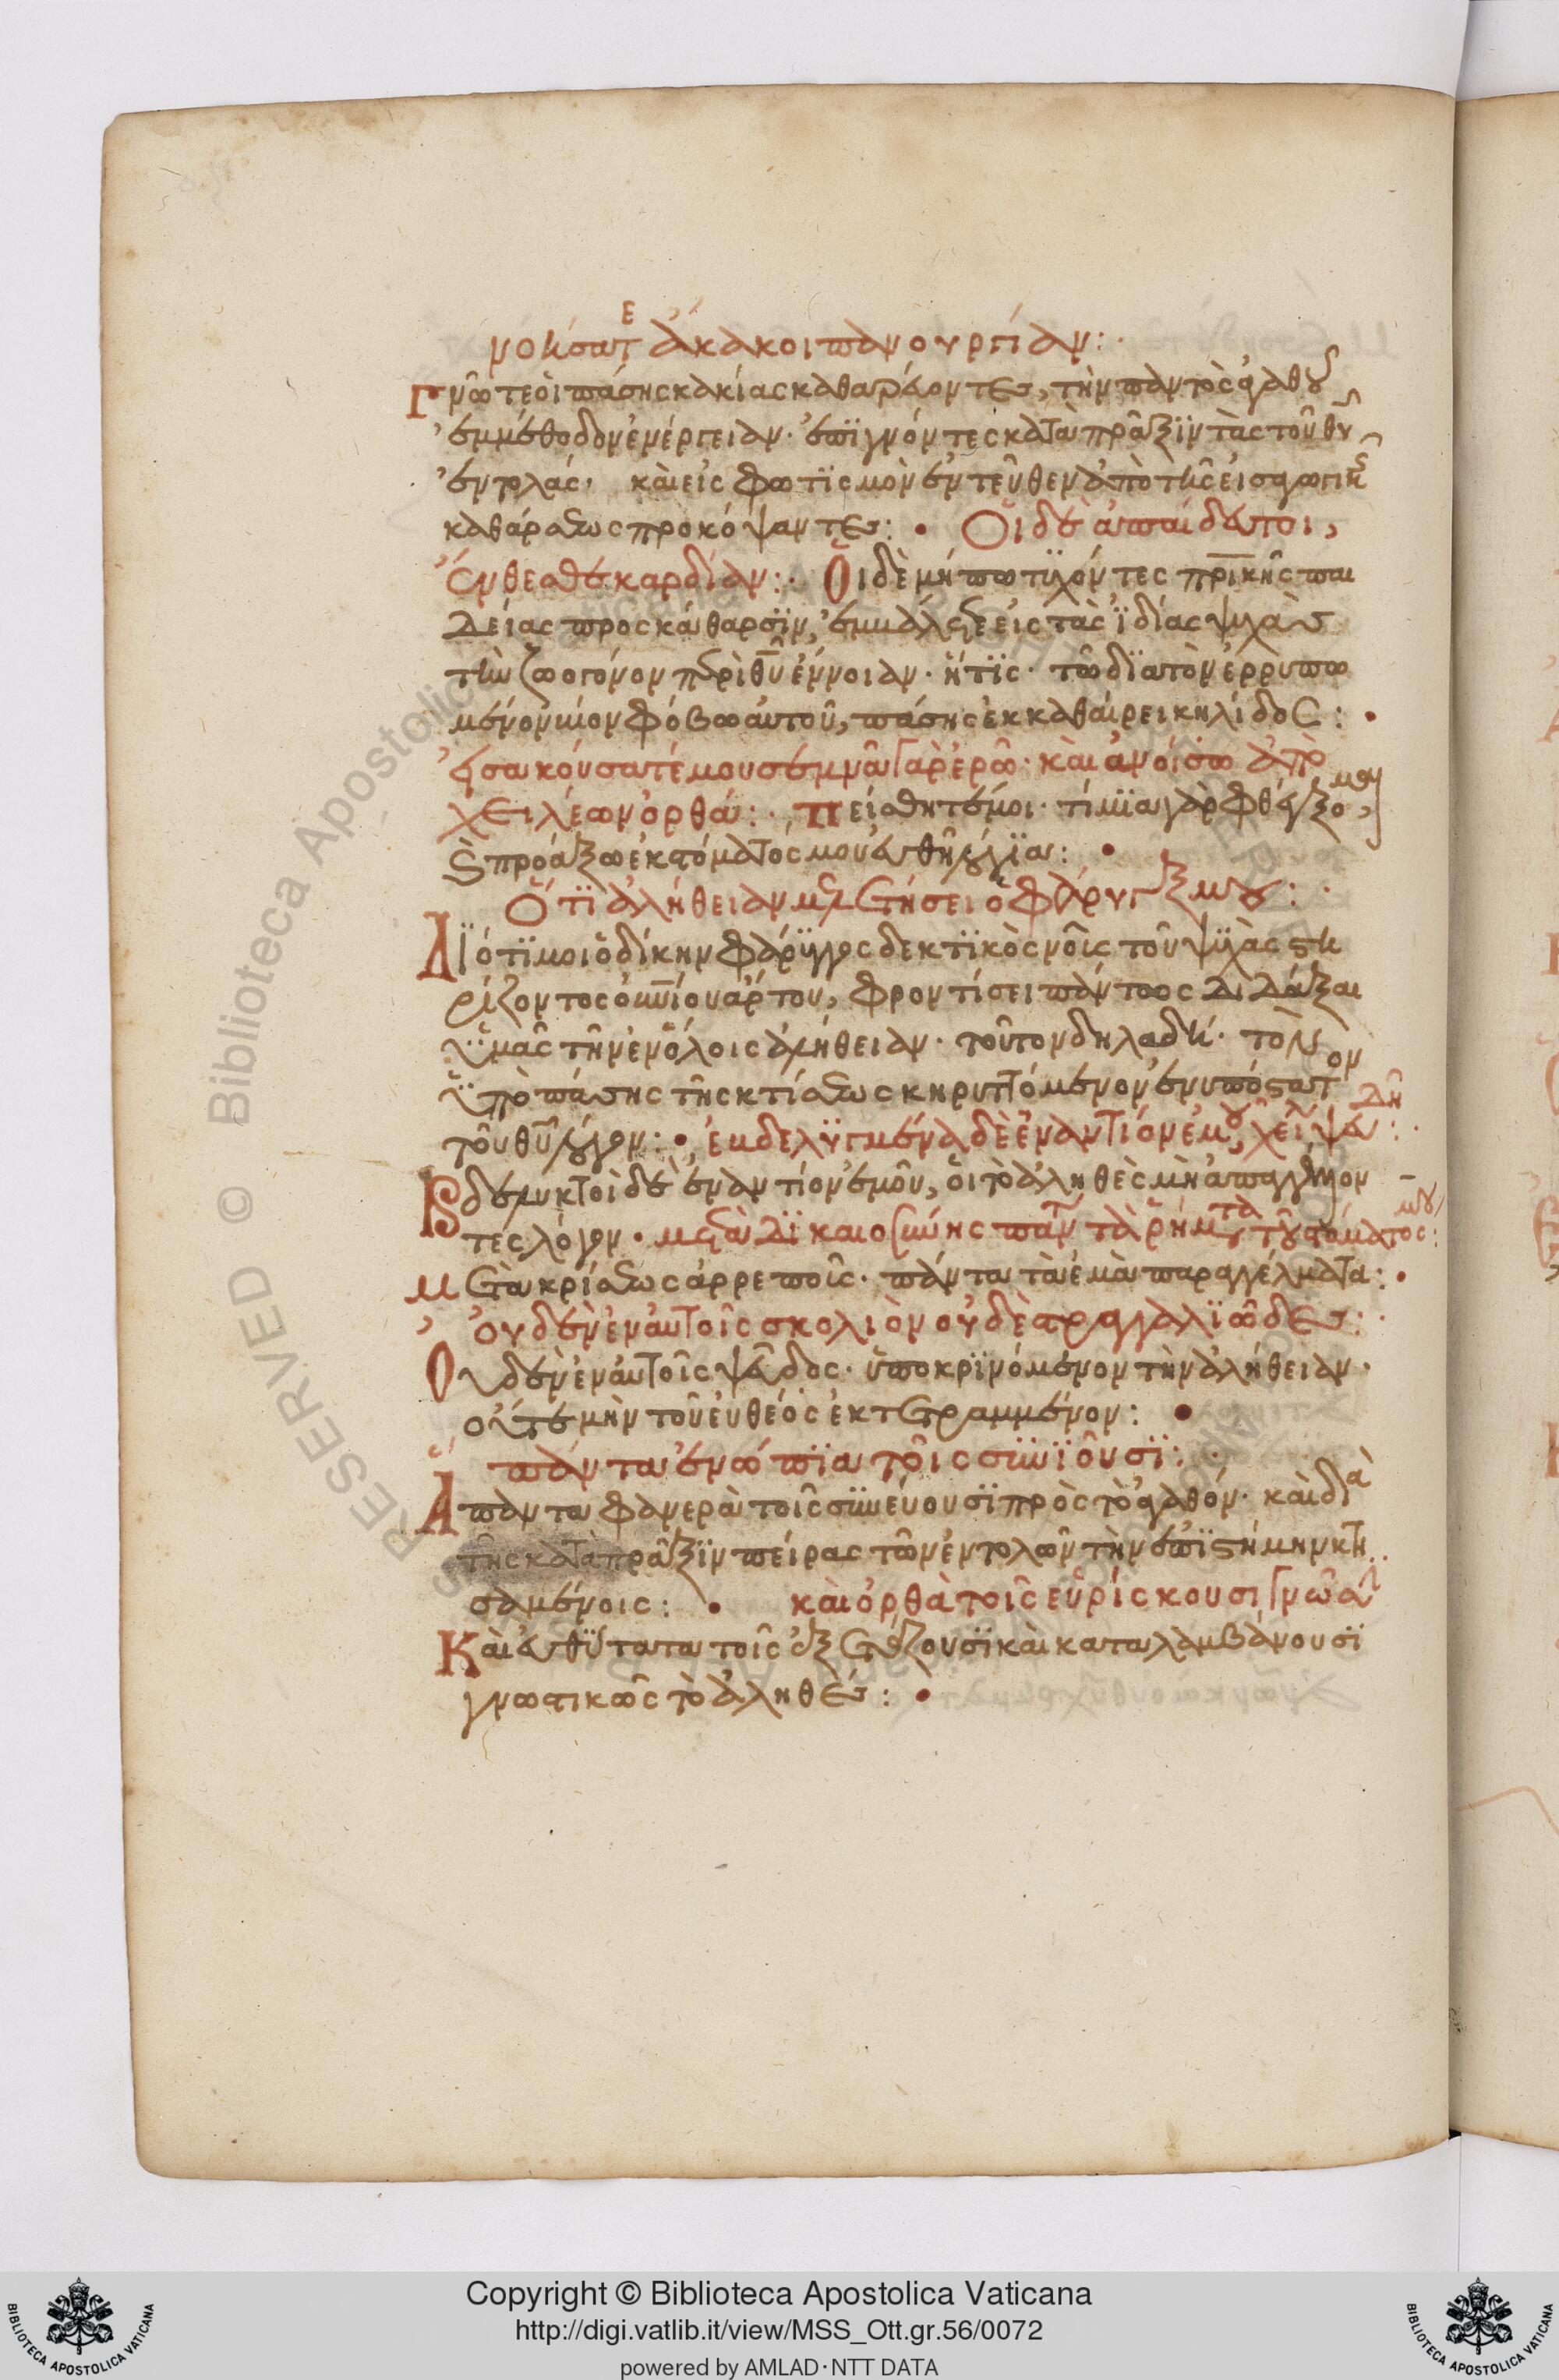 νοήσατε ἄκακοι πανουργίαν:
Γνῶτε οἱ πάσης κακίας καθαρεύοντες, τὴν παντὸς ἀγαθοῦ
ἐμμέθοδον ἐνέργειαν· ἐπϊγνόντες κατὰ πρᾶξϊν τὰς τοῦ θυ
ἐντολάς, καὶ εἰς φωτϊσμὸν ἐντεῦθεν ἀπὸ τῆς εἰσαγωγικῆς
καθάρσεως προκόψαντες: Οἱ δὲ ἀπαίδευτοι,
ἔνθεσθε καρδίαν: Οἱ δὲ μήπω τϋχόντες πρικῆς παι
δείας προς κάθαρσϊν, ἐμβάλεσθε εἰς τὰς ἰδίας ψυχὰς
τὴν ζωογόνον περὶ θυ ἔννοιαν· ἥτϊς· τῶ δϊὰ τὸν ἐρρυπω
μένον βίον φόβω αὐτοῦ, πάσης ἐκκαθαίρει κηλίδος:
εἰσακούσατέ μου σεμνὰ γὰρ ἐρῶ· καὶ ἀνοίσω ἀπὸ
χειλέων ὀρθά: Πείσθητέ μοι· τίμϊα γὰρ φθέγξομαι,
καὶ προάξω ἐκ στόματός μου εὐθῆ λόγϊα:
Ὅτϊ ἀλήθειαν μελετήσει ὁ φάρυγξ μου:
Δϊότϊ μοι ὁ δίκην φάρϋγγος δεκτϊκὸς νοῦς τοῦ ψϋχὰς στη
ρίζοντος οὐνίου ἄρτου, φροντίσει πάντως διδάξαι
ὑμᾶς τὴν ἐν ὅλοις ἀλήθειαν· τοῦτον δηλαδή· τὸν
ὑπὸ πάσης τῆς κτίσεως κηρυττόμενον ἐνυπόστατον
τοῦ θυ λόγον: ἐβδελϋγμένα δὲ ἐναντίον ἐμοῦ χείλη ψευδῆ:
Βδελυκτοὶ δὲ ἐναντίον ἐμοῦ, οἱ τὸ ἀληθὲς μὴ ἀπαγγέλλον
τες λόγον· μετὰ δϊκαιοσύνης πάντα τὰ ῥήματα τοῦ στόματος μου:
Μετὰ κρίσεως ἀρρεποῦς· πάντα τὰ ἐμὰ παραγγέλματα:
Οὐδὲν ἐν αὐτοῖς σκολιὸν οὐδὲ στραγγαλϊῶδες:
Οὐδὲν ἐν αὐτοῖς ψεῦδος· ὑποκρϊνόμενον τὴν ἀλήθειαν·
οὔτε μὴν τοῦ εὐθέος ἐκτετραμμένον:
πάντα ἐνώπϊα τοῖς συνϊοῦσϊ:
Ἅπαντα φανερὰ τοῖς συνεύουσϊ πρὸς τὸ ἀγαθόν· καὶ διὰ
τῆς κατὰ πρᾶξϊν πείρας τῶν ἐντολῶν τὴν ἐπϊστήμην κτη
σαμένοις: καὶ ὀρθὰ τοῖς εὑρίσκουσι γνῶσιν
Καὶ εὐθύτατα τοῖς ἐξετάζουσϊ καὶ καταλαμβάνουσϊ
γνωστικῶς τὸ ἀληθές:
RESERVED © Biblioteca Apostolica Vaticana
Copyright © Biblioteca Apostolica Vaticana
http://digi.vatlib.it/view/MSS_Ott.gr.56/0072
powered by AMLAD·NTT DATA
BIBLIOTECA APOSTOLICA VATICANA
BIBLIOTECA APOSTOLICA VATICANA